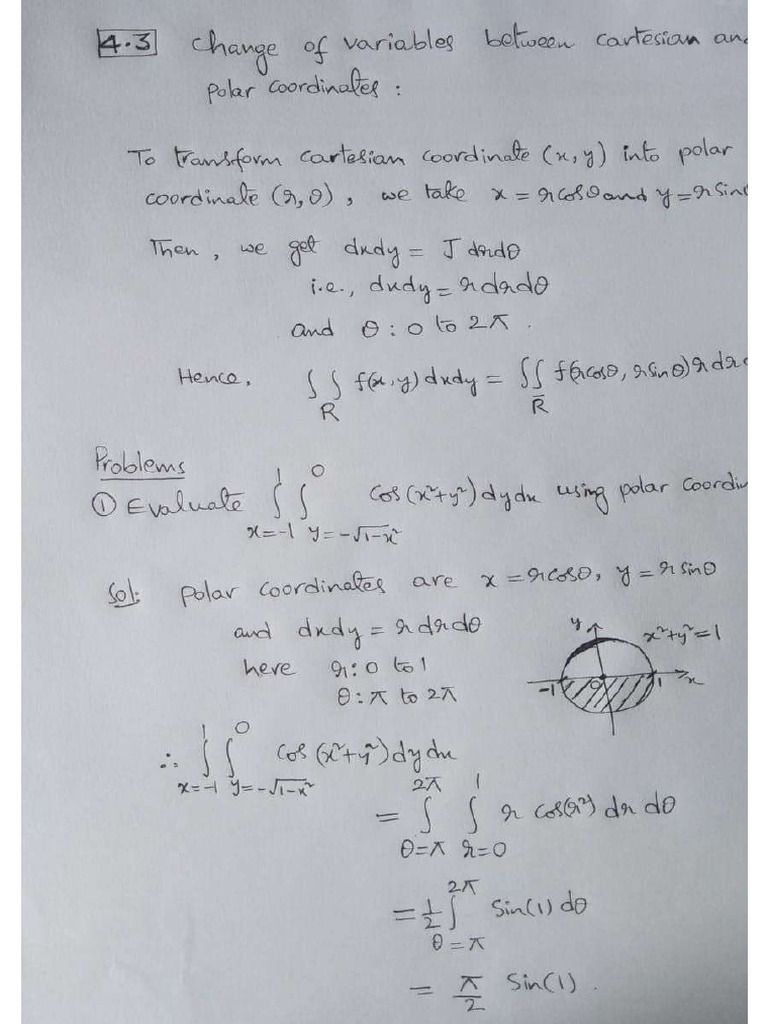 4.3 Change of variables between cartesian an
polar coordinates :
To transform cartesian coordinate (x, y) into polar
coordinate (r, θ), we take x = r cosθ and y = r sin
Then, we get dxdy = J drdθ
i.e., dxdy = r drdθ
and θ : 0 to 2π.
Hence, ∫∫ f(x, y) dxdy = ∫∫ f(r cosθ, r sinθ) r dr
R R̄
Problems
1 0
① Evaluate ∫ ∫ cos(x²+y²) dydx using polar coordi
x=-1 y=-√1-x²
Sol: polar coordinates are x = r cosθ, y = r sinθ
and dxdy = r drdθ
here r : 0 to 1
θ : π to 2π
y x²+y²=1
-1 0 1 x
1 0
∴ ∫ ∫ cos(x²+y²) dydx
x=-1 y=-√1-x²
2π 1
= ∫ ∫ r cos(r²) dr dθ
θ=π r=0
2π
= 1/2 ∫ sin(1) dθ
θ=π
= π/2 sin(1).